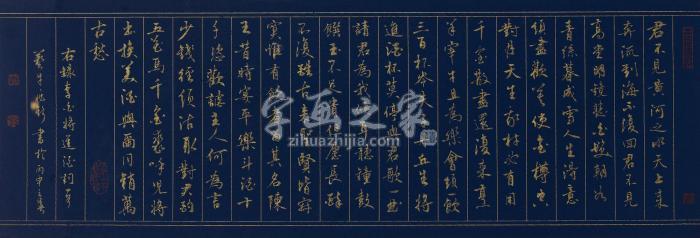 君不見黄河之水天上来
奔流到海不復回君不見
高堂明鏡悲白髮朝如
青絲暮成雪人生得意
須盡歡莫使金樽空
對月天生我材必有用
千金散盡還復来烹
羊宰牛且為樂會須飲
三百杯岑夫子丹丘生將
進酒杯莫停與君歌一曲
請君為我傾耳聽鐘鼓
饌玉不足貴但願長醉
不復醒古来聖賢皆寂
寞惟有飲者留其名陳
王昔時宴平樂斗酒十
千恣歡謔主人何為言
少錢徑須沽取對君酌
五花馬千金裘呼兒將
出換美酒與爾同銷萬
古愁
右録李白將進酒詞
書於丙申之
字画之家
www.zihuazhijia.com